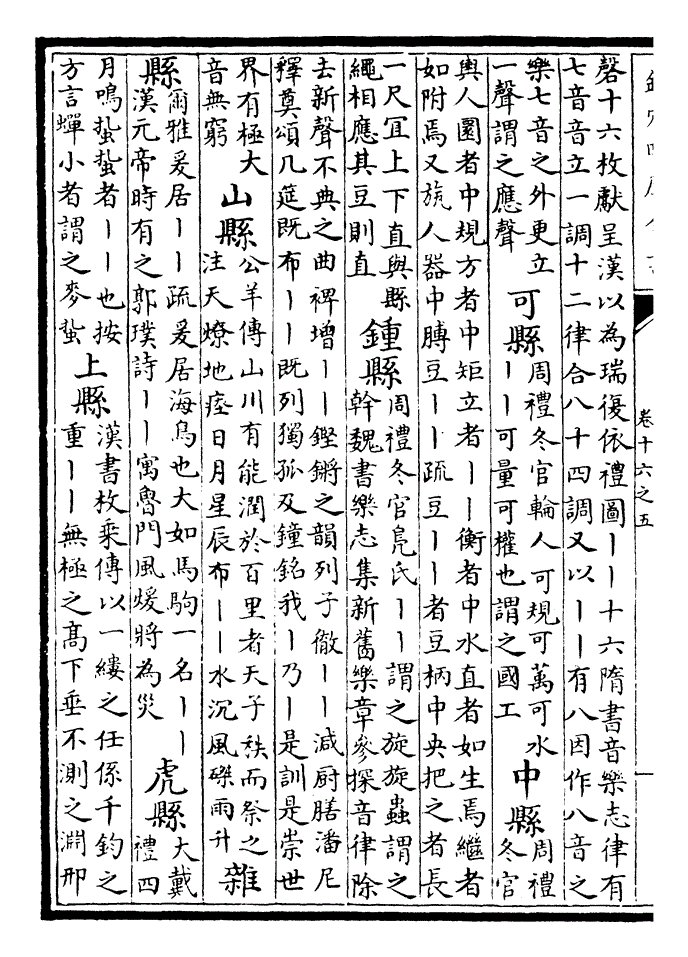 卷十六之五
磬十六枚獻呈漢以為瑞復依禮圖丨丨十六隋書音樂志律有
七音音立一調十二律合八十四調又以丨丨有八因作八音之
樂七音之外更立
一聲謂之應聲
可縣
周禮冬官輪人可規可萬可水
丨丨可量可權也謂之國工
中縣
周禮
冬官
輿人圜者中規方者中矩立者丨丨衡者中水直者如生焉繼者
如附焉又旊人器中膊豆丨丨疏豆丨丨者豆柄中央把之者長
一尺宜上下直與縣
繩相應其豆則直
鍾縣
周禮冬官鳧氏丨丨謂之旋旋蟲謂之
幹魏書樂志集新舊樂章參探音律除
去新聲不典之曲裨增丨丨鏗鏘之韻列子徹丨丨減厨膳潘尼
釋奠頌几筵既布丨丨既列獨孤及鐘銘我丨乃丨是訓是崇世
界有極大
音無窮
山縣
公羊傳山川有能潤於百里者天子秩而祭之
注天燎地瘞日月星辰布丨丨水沉風磔雨升
雜
縣
爾雅爰居丨丨疏爰居海鳥也大如馬駒一名丨丨
漢元帝時有之郭璞詩丨丨寓魯門風煖將為災
虎縣
大戴
禮四
月鳴蜇蜇者丨丨也按
方言蟬小者謂之麥蜇
上縣
漢書枚乘傳以一縷之任係千鈞之
重丨丨無極之髙下垂不測之淵邢